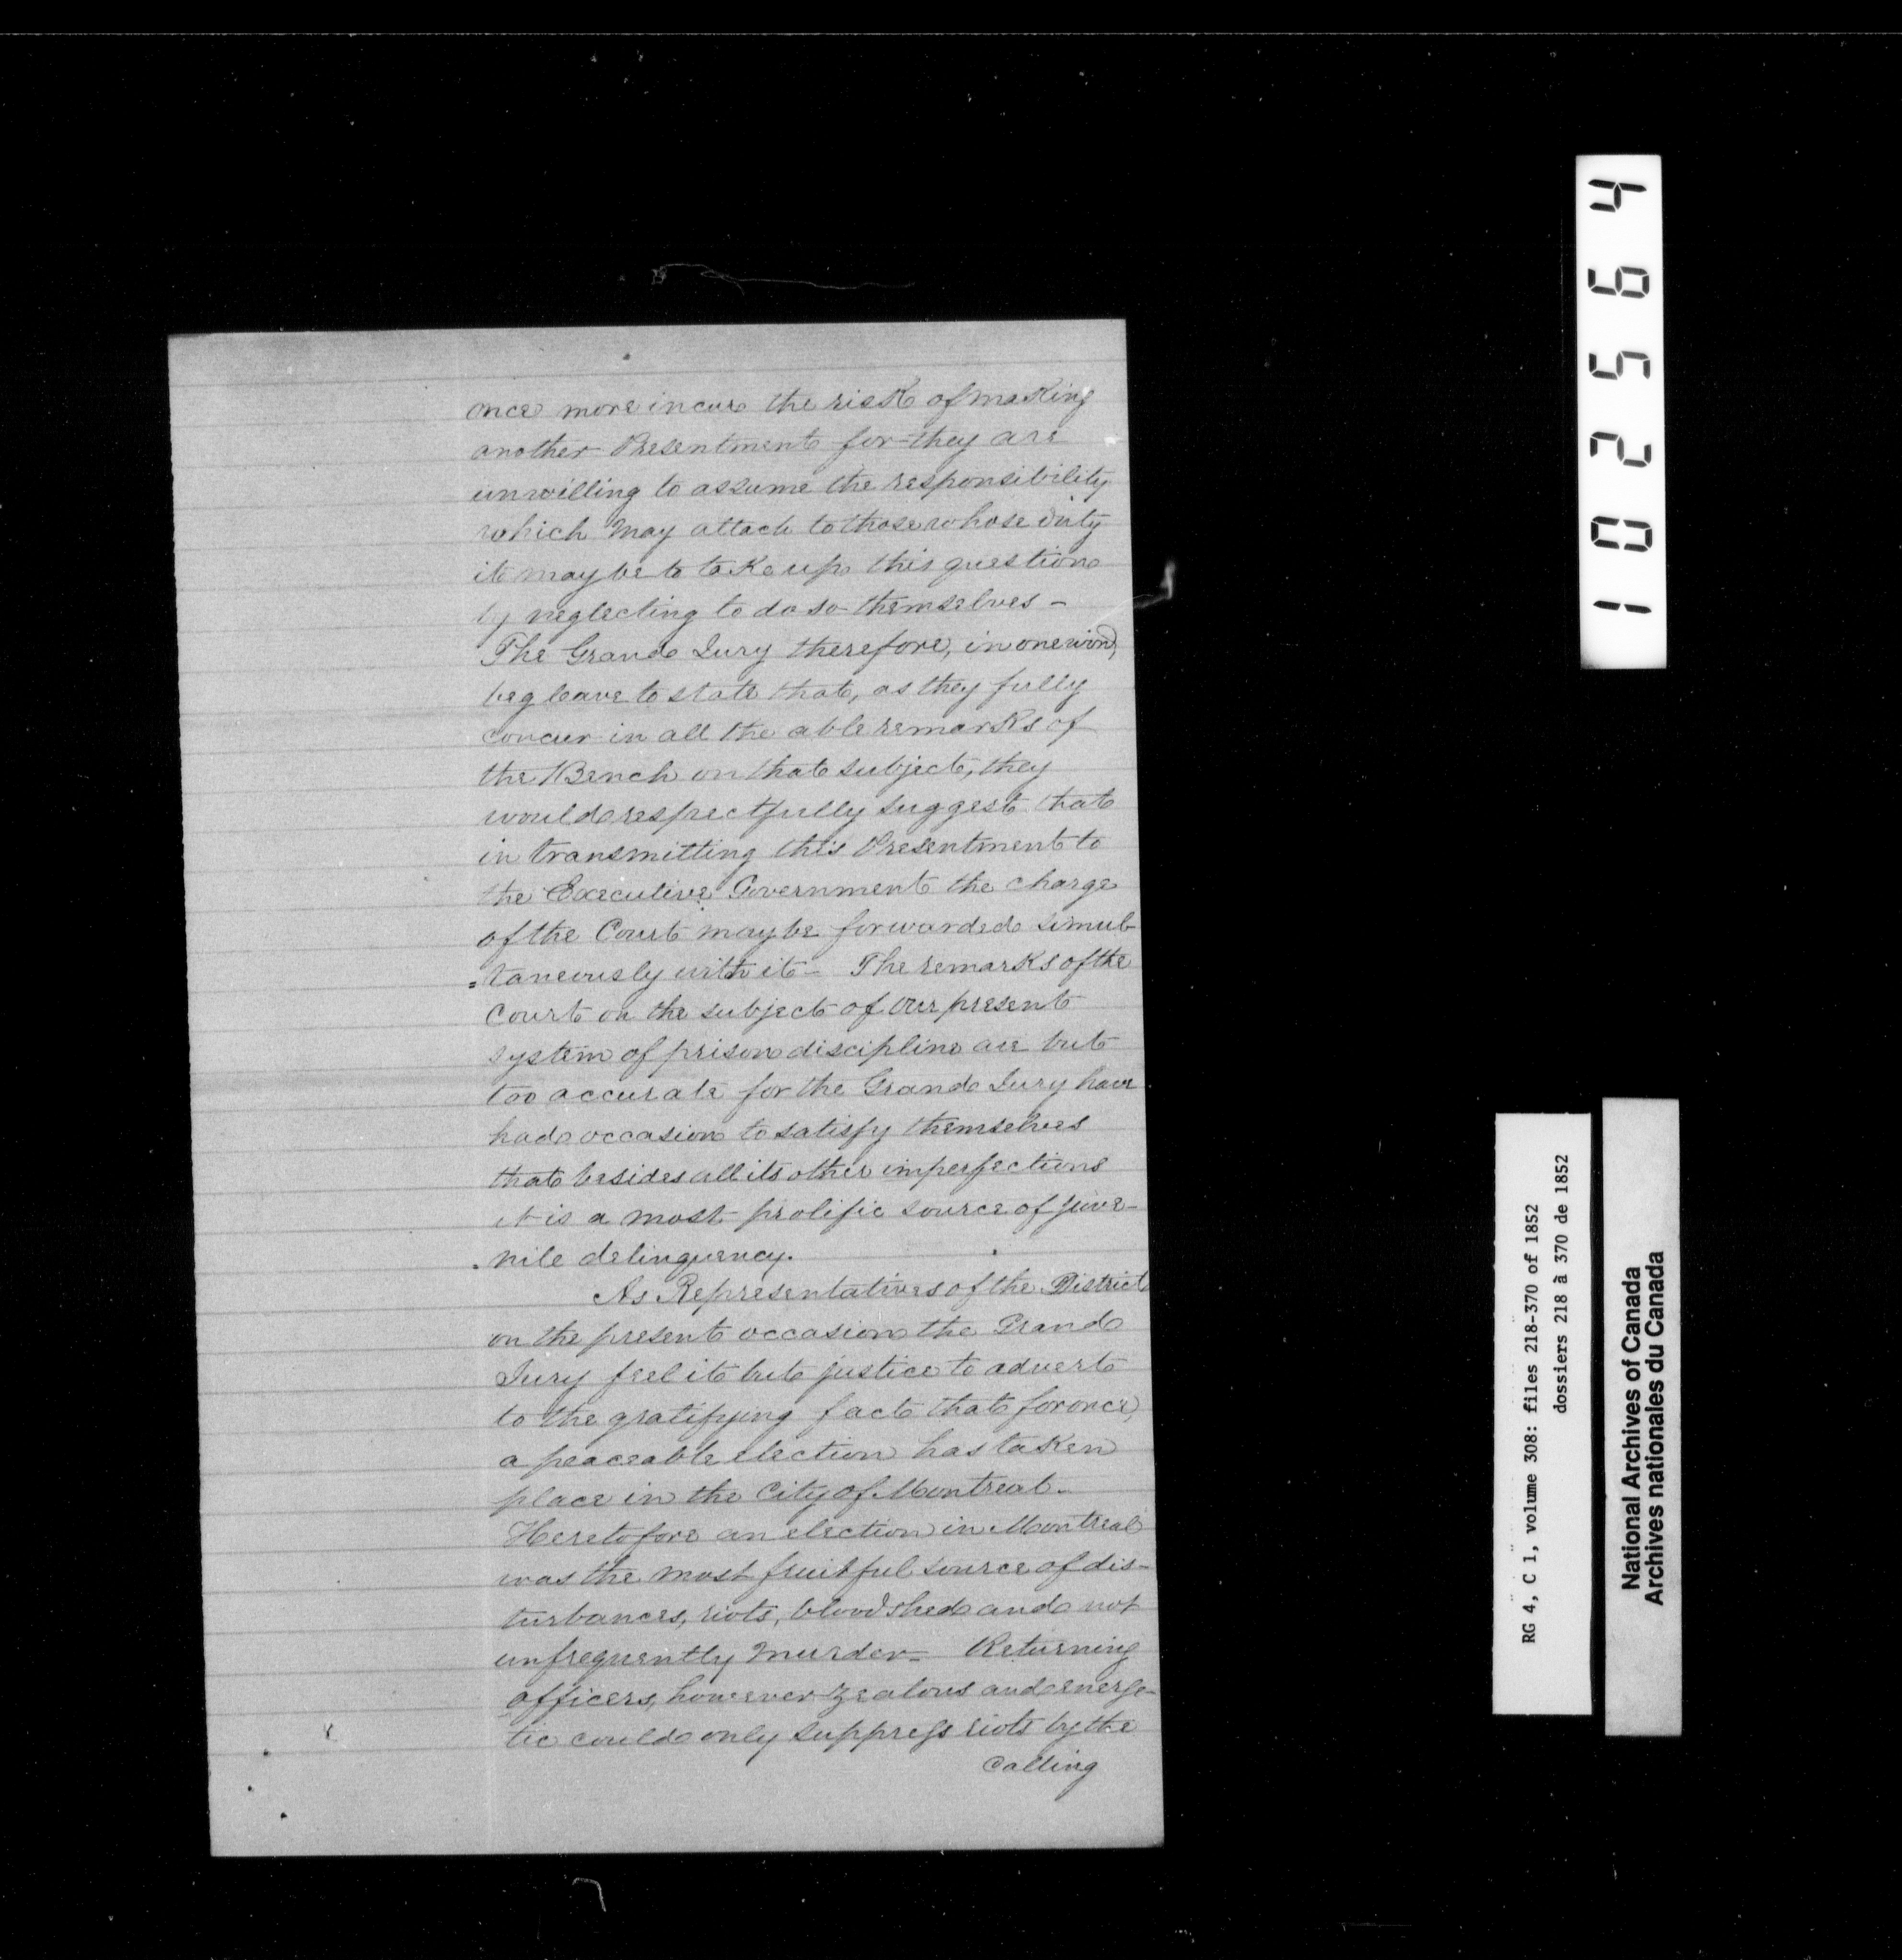 once more incur the risk of making
another Presentment for they are
unwilling to assume the responsibility
which may attach to those whose duty
it may be to take up this question
by neglecting to do so themselves –
The Grand Jury therefore, in one word,
beg leave to state that, as they fully
concur in all the able remarks of
the Bench on that subject, they
would respectfully suggest that
in transmitting this Presentment to
the Executive Government the charge
of the Court may be forwarded simul-
=taneously with it – The remarks of the
Court on the subject of our present
system of prison discipline are but
too accurate for the Grand Jury have
had occasion to satisfy themselves
that besides all its other imperfections
it is a most prolific source of juve-
-nile delinquency.
As Representatives of the District
on the present occasion the Grand
Jury feel it but justice to advert
to the gratifying fact that for once,
a peaceable election has taken
place in the City of Montreal.
Heretofore an election in Montreal
was the most fruitful source of dis-
turbances, riots, bloodshed and not
unfrequently murder – Returning
officers, however zealous and energe-
tic could only suppress riots by the
calling
102564
RG 4, C 1, volume 308: files 218-370 of 1852
dossiers 218 à 370 de 1852
National Archives of Canada
Archives nationales du Canada